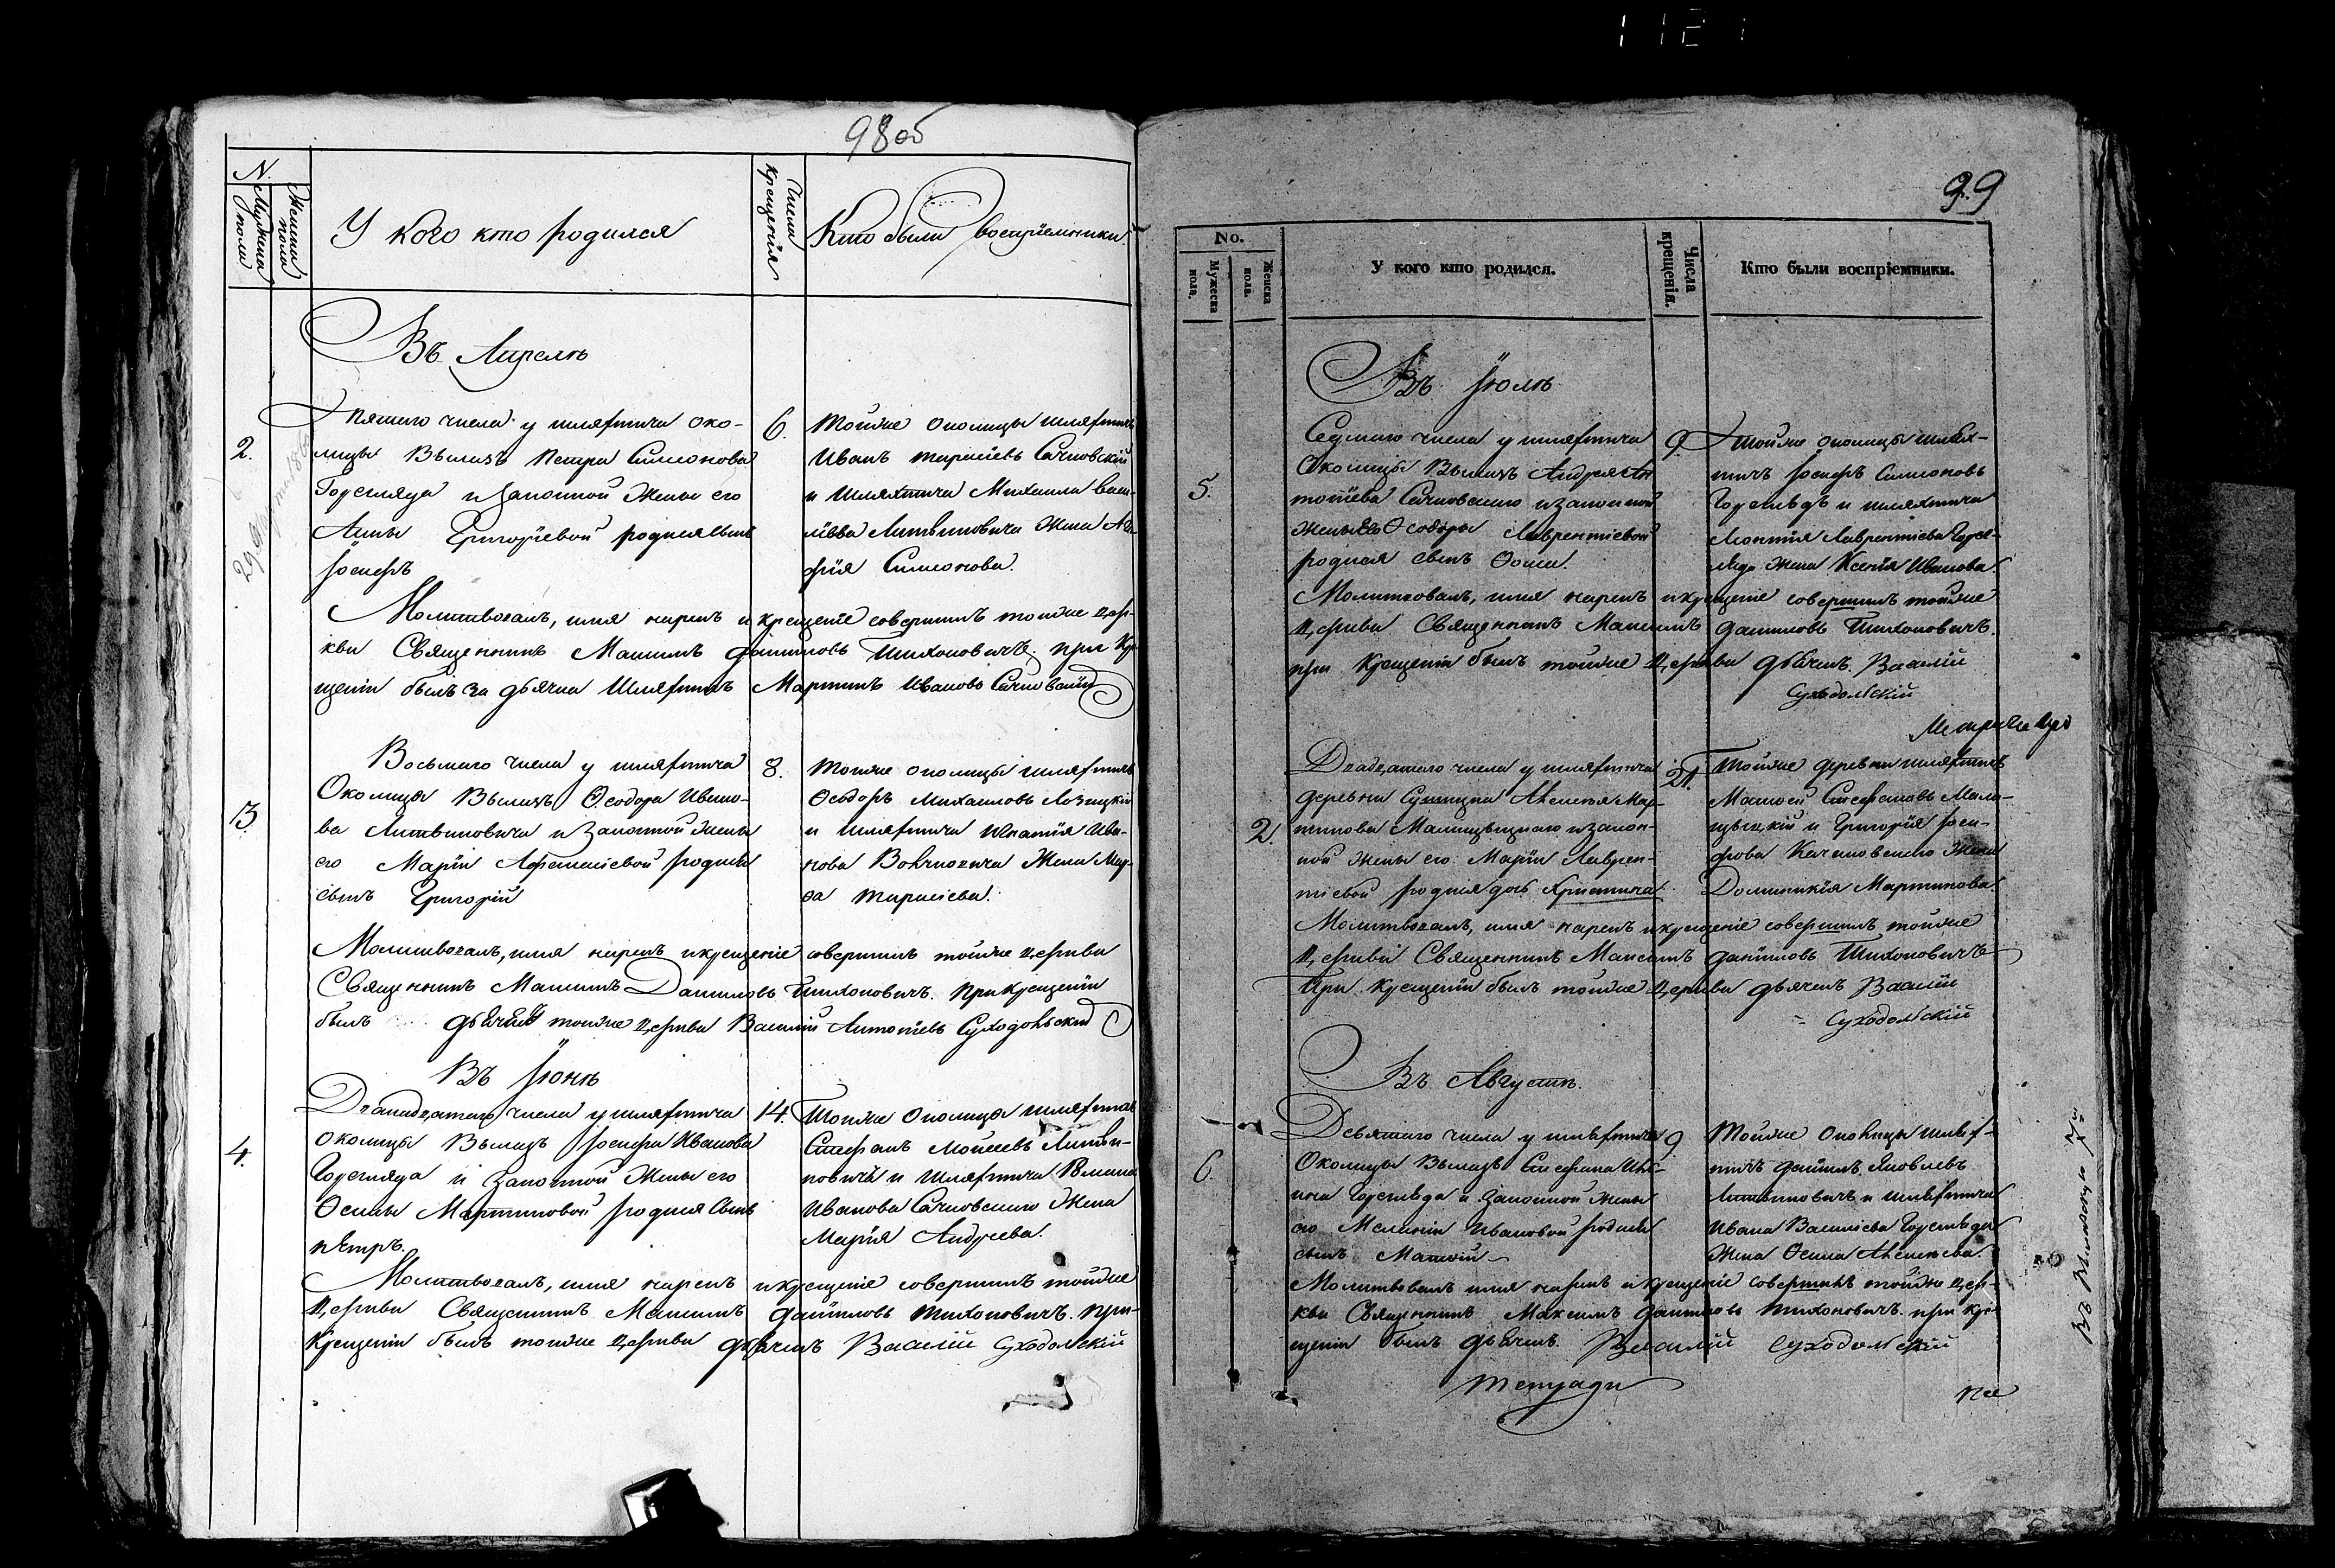 98 об
N.
Мужеска пола
Женска пола
У кого кто родился
Числа крещенія
Кто были воспріемники.
Въ Апреле
2.
Пятаго числа у шляхтича око-
лицы Вылазъ Петра Симонова
Горегляда и законной Жены его
Анны Григоріевой родился Сынъ
Іосифъ
6.
Тойже околицы шляхтичъ
Иванъ Тарасіевъ Сачковскій
и шляхтича Михаила Васи-
ліева Литвиновича Жена
Симонова.
Молитвовалъ, имя нарекъ и крещеніе совершилъ тойже Цер-
кви Священникъ Максимъ Даниловъ Тихоновичъ. при Кре-
щеніи былъ за дьячка Шляхтичъ Мартинъ Ивановъ Сачковскій
3.
Восьмаго числа у шляхтича
Околицы Вылазъ Ѳеодора Ивано-
ва Литвиновича и законной Жены
его Маріи Афанасіевой родился
сынъ Григорій
8.
Тойже околицы шляхтичъ
Ѳеодоръ Михаиловъ
и шляхтича Игнатія Ива-
нова Жена Мар-
ѳа Тарасіева.
Молитвовалъ, имя нарекъ и крещеніе совершилъ тойже Церкви
Священникъ Максимъ Даниловъ Тихоновичъ. При Крещеніи
былъ дьячекъ тойже Церкви Василій Антоніевъ Суходольскій
Въ Іюне
4.
Двападцатаго числа у шляхтича
околицы Вылазъ Іосифа Иванова
Горегляда и законной Жены его
Ѳеклы Мартиновой родился Сынъ
петръ.
14.
Тойже Околицы шляхтичъ
Стефанъ Моисеевъ Литви-
новичъ и шляхтича Романа
Иванова Сачковскаго Жена
Марія Андреева.
Молитвовалъ, имя нарекъ и крещеніе совершилъ тойже
Церкви Священникъ Максимъ Даниловъ Тихоновичъ. при-
Крещеніи былъ тойже Церкви дьячекъ Василій Суходольскій
99
No.
Мужеска пола.
Женска пола.
У кого кто родился.
Числа крещенія.
Кто были воспріемники.
Въ Іюле
5.
Седмаго числа у шляхтича
Околицы Вылазъ Андрея Ан-
тоніева Сачковскаго и законной
Жены его Ѳеодоры Лаврентіевой
родился сынъ Ѳома.
9.
Тойже околицы шлях-
тичъ Іосифъ Симоновъ
Горегля̀дъ и шляхтича
Леонтія Лаврентіева Горег-
ляда Жена Ксенія Иванова.
Молитвовалъ, имя нарекъ и крещеніе совершилъ тойже
Церкви Священникъ Максимъ Даниловъ Тихоновичъ.
при Крещеніи былъ тойже Церкви дьячекъ Василій
Суходольскій
2.
Двадцатаго числа у шляхтича
деревни Алексея Мар-
тинова и закон-
ной жены его Маріи Лаврен-
тіевой родися дочь Христина
21.
Тойже деревни шляхтичъ
Матѳей Стефановъ Мали-
и Григорія Іоси-
фова Качановскаго Жена
Доминикія Мартинова.
Молитвовалъ, имя нарекъ и крещеніе совершилъ тойже
Церкви Священникъ Максимъ Даниловъ Тихоновичъ
При Крещеніи былъ тойже Церкви дьячекъ Василій
Суходольскій
Въ Августе.
6.
Девятаго числа у шляхтича
Околицы Вылазъ Стефана
Горегляда и законной Жены
его Меланіи Ивановой родился
сынъ Матѳій
9
Тойже Околицы шлях-
тичъ Даніилъ Яковлевъ
Литвиновичъ и шляхтича
Ивана Василіева Горегляда
Жена Ѳекла Алексеева.
Молитвовалъ имя нарекъ и крещеніе совершилъ тойже Цер-
кви Священникъ Максимъ Даниловъ Тихоновичъ. при Кре-
щеніи былъ дьячекъ Василій Суходольскій
тетради